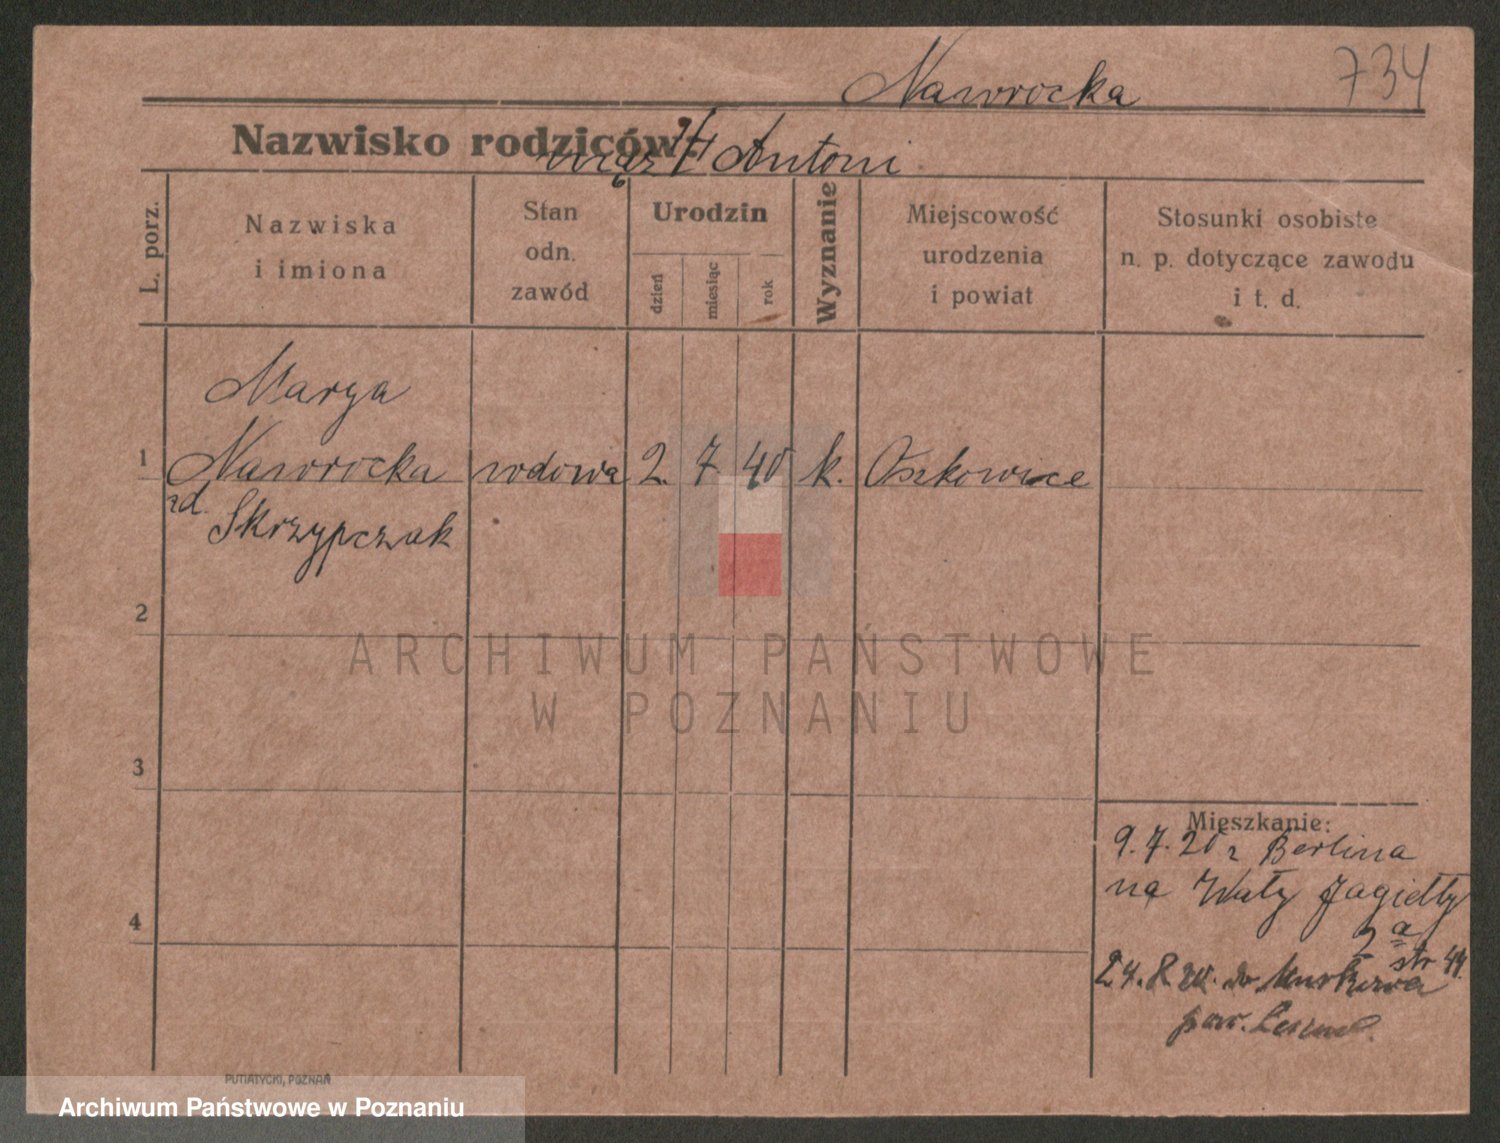 Nawrocka
734
Nazwisko rodziców:
mąż Antoni
L. porz.
Nazwiska
i imiona
Stan
odn.
zawód
Urodzin
dzień
miesiąc
rok
Wyznanie
Miejscowość
urodzenia
i powiat
Stosunki osobiste
n. p. dotyczące zawodu
i t. d.
Marya
1 Nawrocka wdowa 2. 7 40 k. Oszkowice
zd. Skrzypczak
2
3
4
Mieszkanie:
9.7.20 z Berlina
na Wały Jagiełły
2a
str 44.
24.8.20. do
pow.
ARCHIWUM PAŃSTWOWE
W POZNANIU
PUTIATYCKI, POZNAŃ
Archiwum Państwowe w Poznaniu